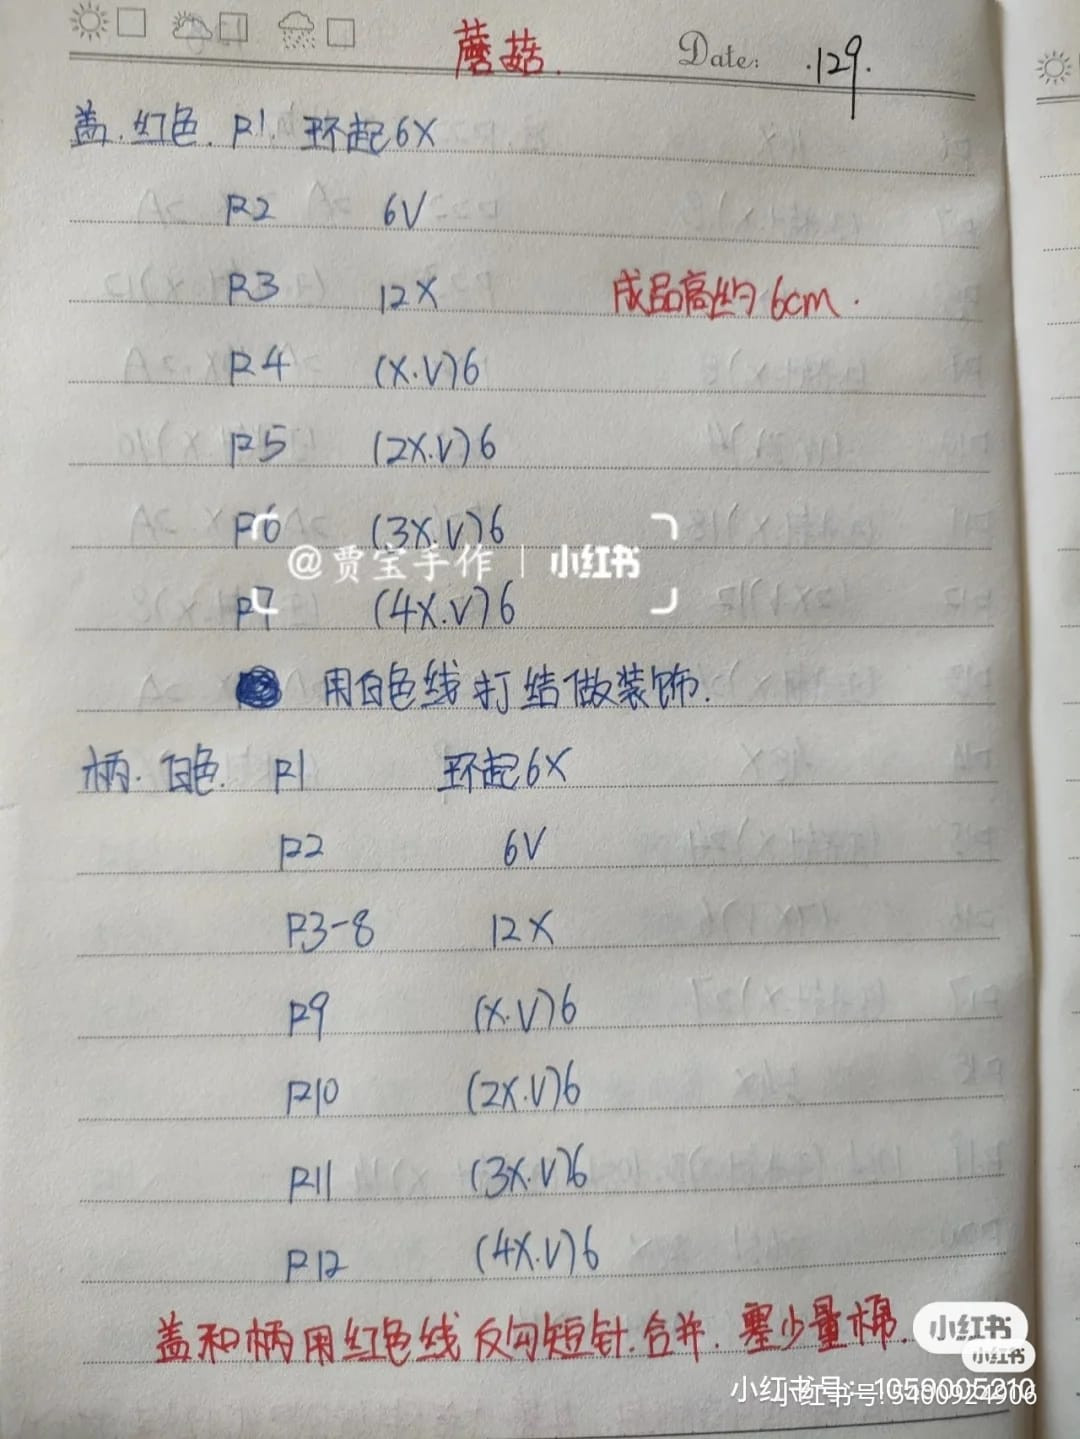 蘑菇. Date: .129.
盖.红色. R1. 环起6X
R2 6V
R3 12X 成品高约6cm.
R4 (X.V)6
R5 (2X.V)6
R6 (3X.V)6
@贾宝手作 | 小红书
R7 (4X.V)6
用白色线打结做装饰.
柄.白色. R1 环起6X
R2 6V
R3-8 12X
R9 (X.V)6
R10 (2X.V)6
R11 (3X.V)6
R12 (4X.V)6
盖和柄用红色线反勾短针.合并.塞少量棉.
小红书
小红书
小红书号: 1050005210
小红书号: 5400924906